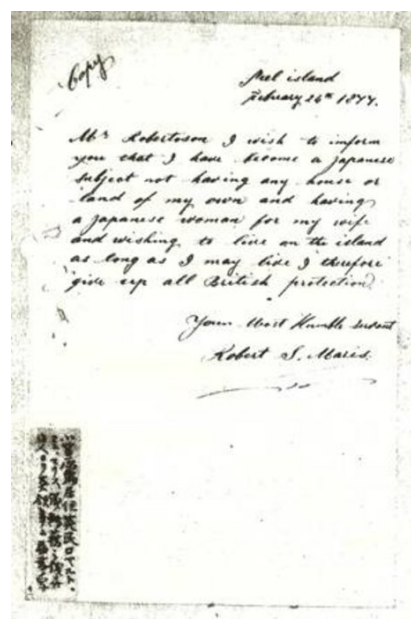 Copy
Peel island
February 26th 1877.
Mr Robertoson I wish to inform
you that I have become a Japanese
subject not having any house or
land of my own and having
a Japanese woman for my wife
and wishing to live on the island
as long as I may live I therefore
give up all British protection
Your Most Humble Servant
Robert S. Maris.
小笠原島居住英民ロベルト、